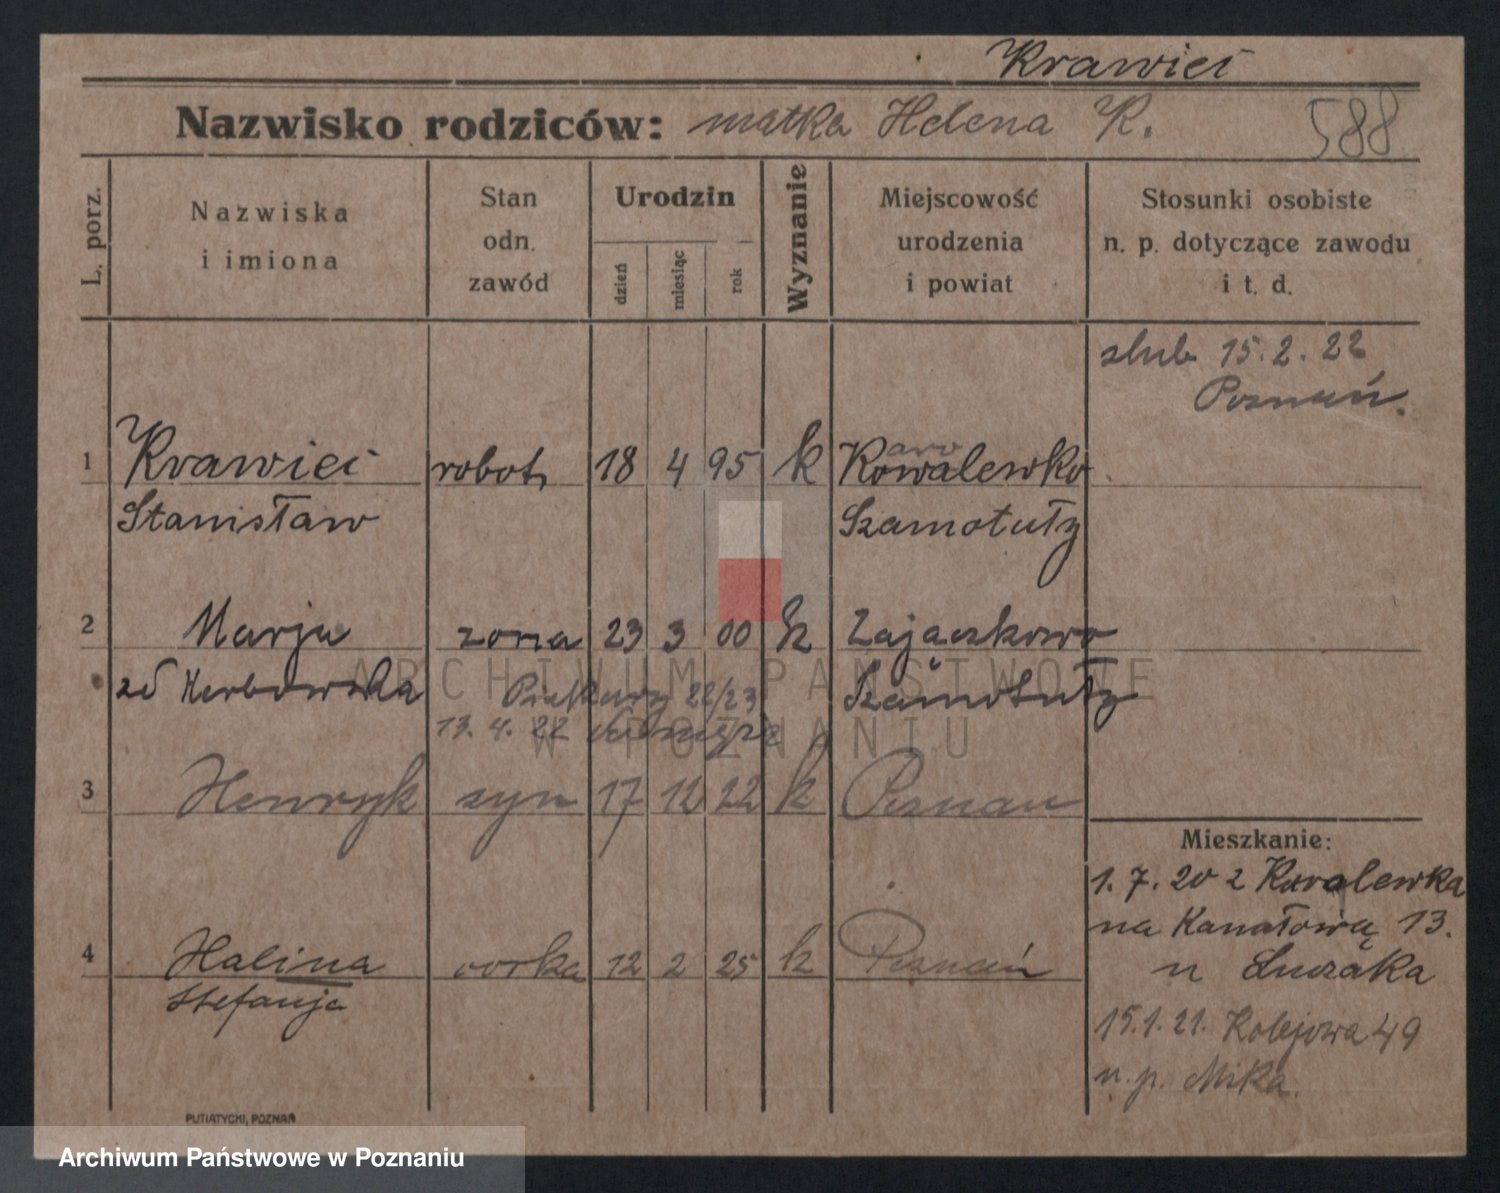 Krawiec
Nazwisko rodziców: matka Helena K. 588
L. porz.
Nazwiska i imiona
Stan odn. zawód
Urodzin
dzień
miesiąc
rok
Wyznanie
Miejscowość urodzenia i powiat
Stosunki osobiste n. p. dotyczące zawodu i t. d.
slub 15.2.22
Poznań.
1 Krawiec robotn 18 4 95 k Kowalewko
aro
Stanisław Szamotuły
2 Marja zona 23 3 00 k Zajączkowo
zd Herbowska Piekary 22/23 Szamotuły
13. 4. 22 do męża
3 Henryk syn 17 12 22 k Poznan
Mieszkanie:
1. 7. 20 z Kowalewka
na Kanałową 13.
4 Halina corka 12 2 25 k Poznań
u Luczaka
Stefanja
15.1.21. Kolejowa 49
u. p. Mika.
PUTIATYCKI, POZNAŃ
ARCHIWUM PAŃSTWOWE
W POZNANIU
Archiwum Państwowe w Poznaniu